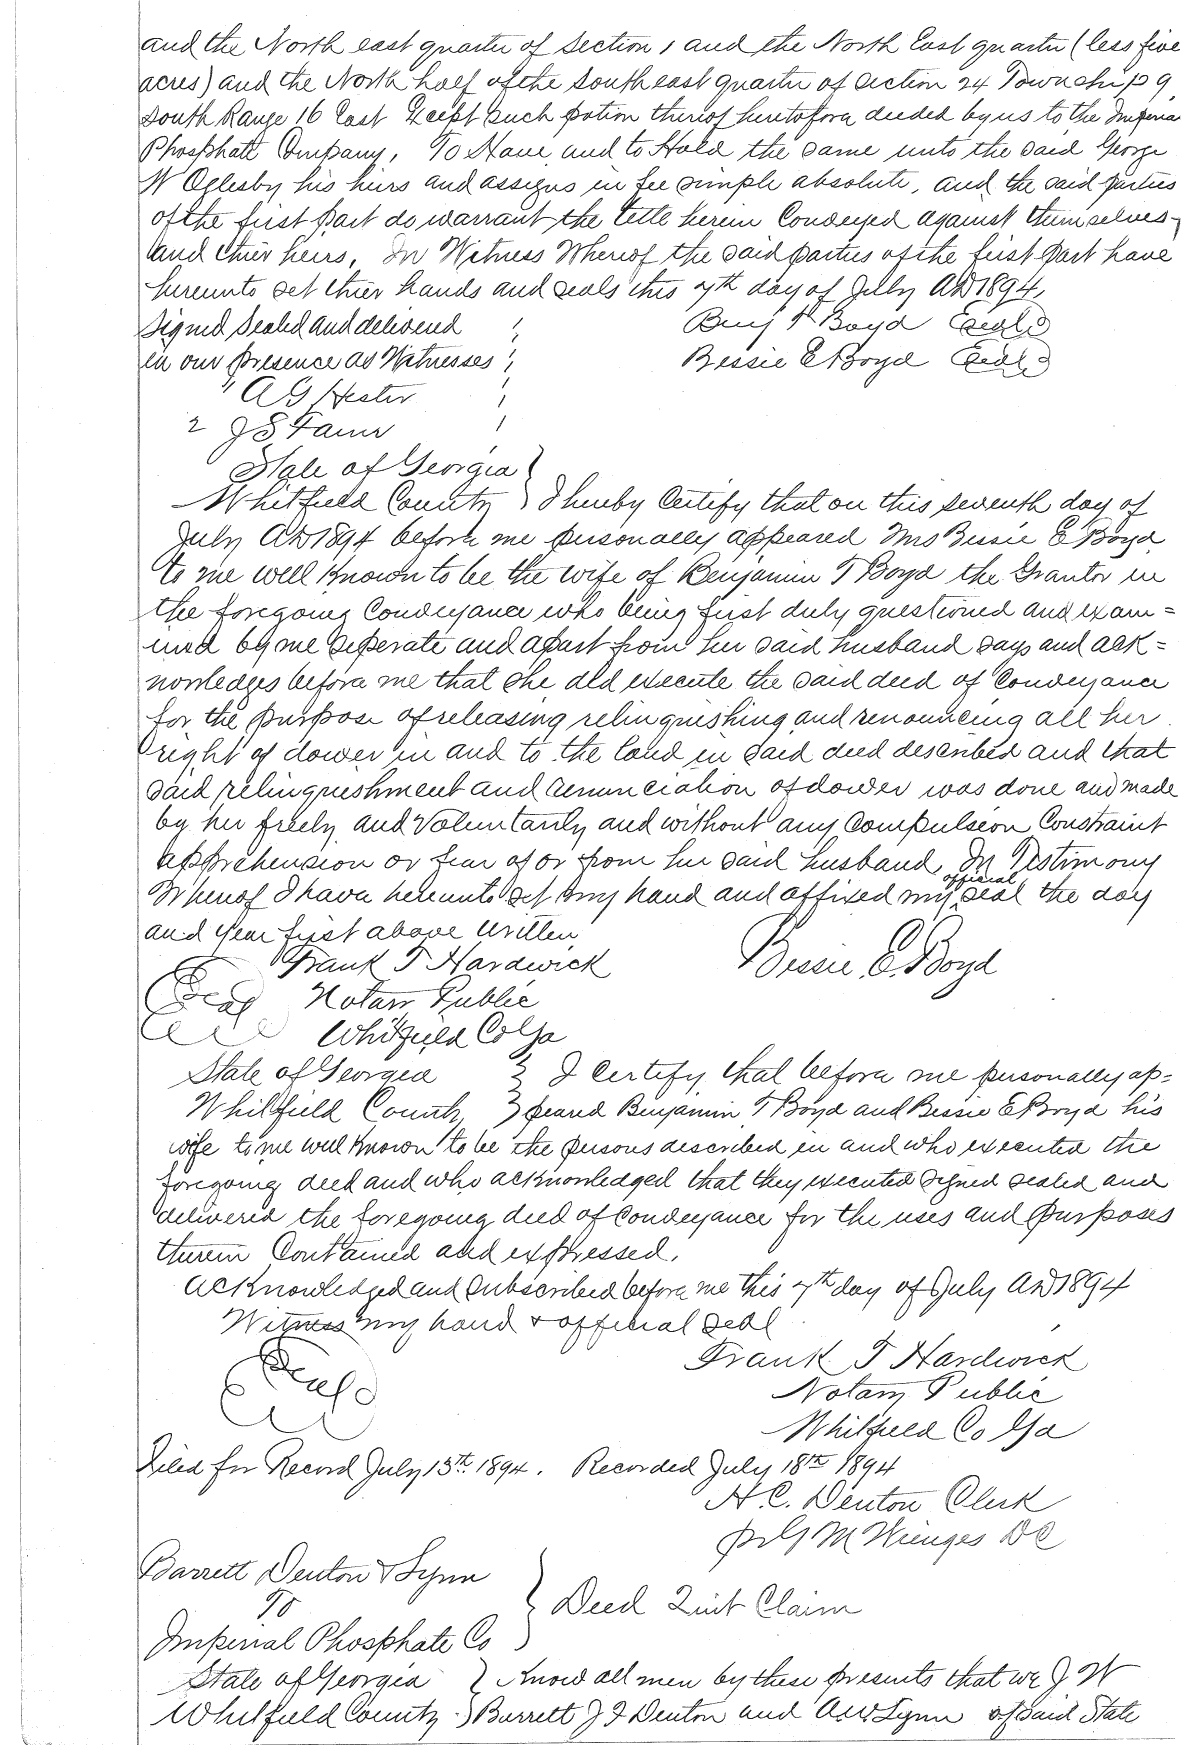 and the North east quarter of Section 1 and the North East quarter (less five
acres) and the North half of the South east quarter of Section 24 Township 9
South Range 16 East Except such potion thereof heretofore deeded by us to the Imperia
Phosphate Company, To Have and to Hold the same unto the said George
W Oglesby his heirs and assigns in fee simple absolute, and the said parties
of the first part do warrant the title herein Conveyed against themselves
and thier heirs, In Witness Whereof the said parties of the first part have
hereunto set thier hands and seals this 7th day of July AD 1894,
Signed Sealed and delivered Benj T Boyd Seal
in our presence as Witnesses Bessie E Boyd Seal
" A G Hester
2 J S
State of Georgia
Whitfield County } I hereby Certify that on this Seventh day of
July AD 1894 before me personally appeared Mrs Bessie E Boyd
to me well Known to be the wife of Benjamin T Boyd the Grantor in
the foregoing Conveyance who being first duly questioned and exam=
ined by me seperate and apart from her said husband says and ack=
nowledges before me that she did execute the said deed of Conveyance
for the purpose of releasing relinquishing and renouncing all her
right of dower in and to the land in said deed described and that
said relinquishment and renunciation of dower was done and made
by her freely and Voluntarily and without any Compulsion Constraint
apprehension or fear of or from her said husband In Testimony
Whereof I have hereunto set my hand and affixed my official seal the day
and year first above written
Frank T Hardwick Bessie E. Boyd
Seal Notary Public
Whitfield Co Ga
State of Georgia } I Certify that before me personally ap=
Whitfield County } peared Benjamin T Boyd and Bessie E Boyd his
wife to me well Known to be the persons described in and who executed the
foregoing deed and who acknowledged that they executed signed sealed and
delivered the foregoing deed of Conveyance for the uses and purposes
therein Contained and expressed.
Acknowledged and Subscribed before me this 7th day of July AD 1894
Witness my hand & official seal
Seal Frank T Hardwick
Notary Public
Whitfield Co Ga
Filed for Record July 13th 1894. Recorded July 18th 1894
H. C. Denton Clerk
pr G M Wienges DC
Barrett Denton & Lynn
To } Deed Quit Claim
Imperial Phosphate Co
State of Georgia } Know all men by these presents that we J W
Whitfield County } Barrett J F Denton and A W Lynn of said State